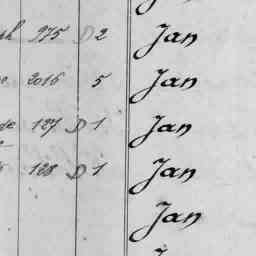 975 D 2 Jan
2016 5 Jan
127 D 1 Jan
128 D 1 Jan
Jan